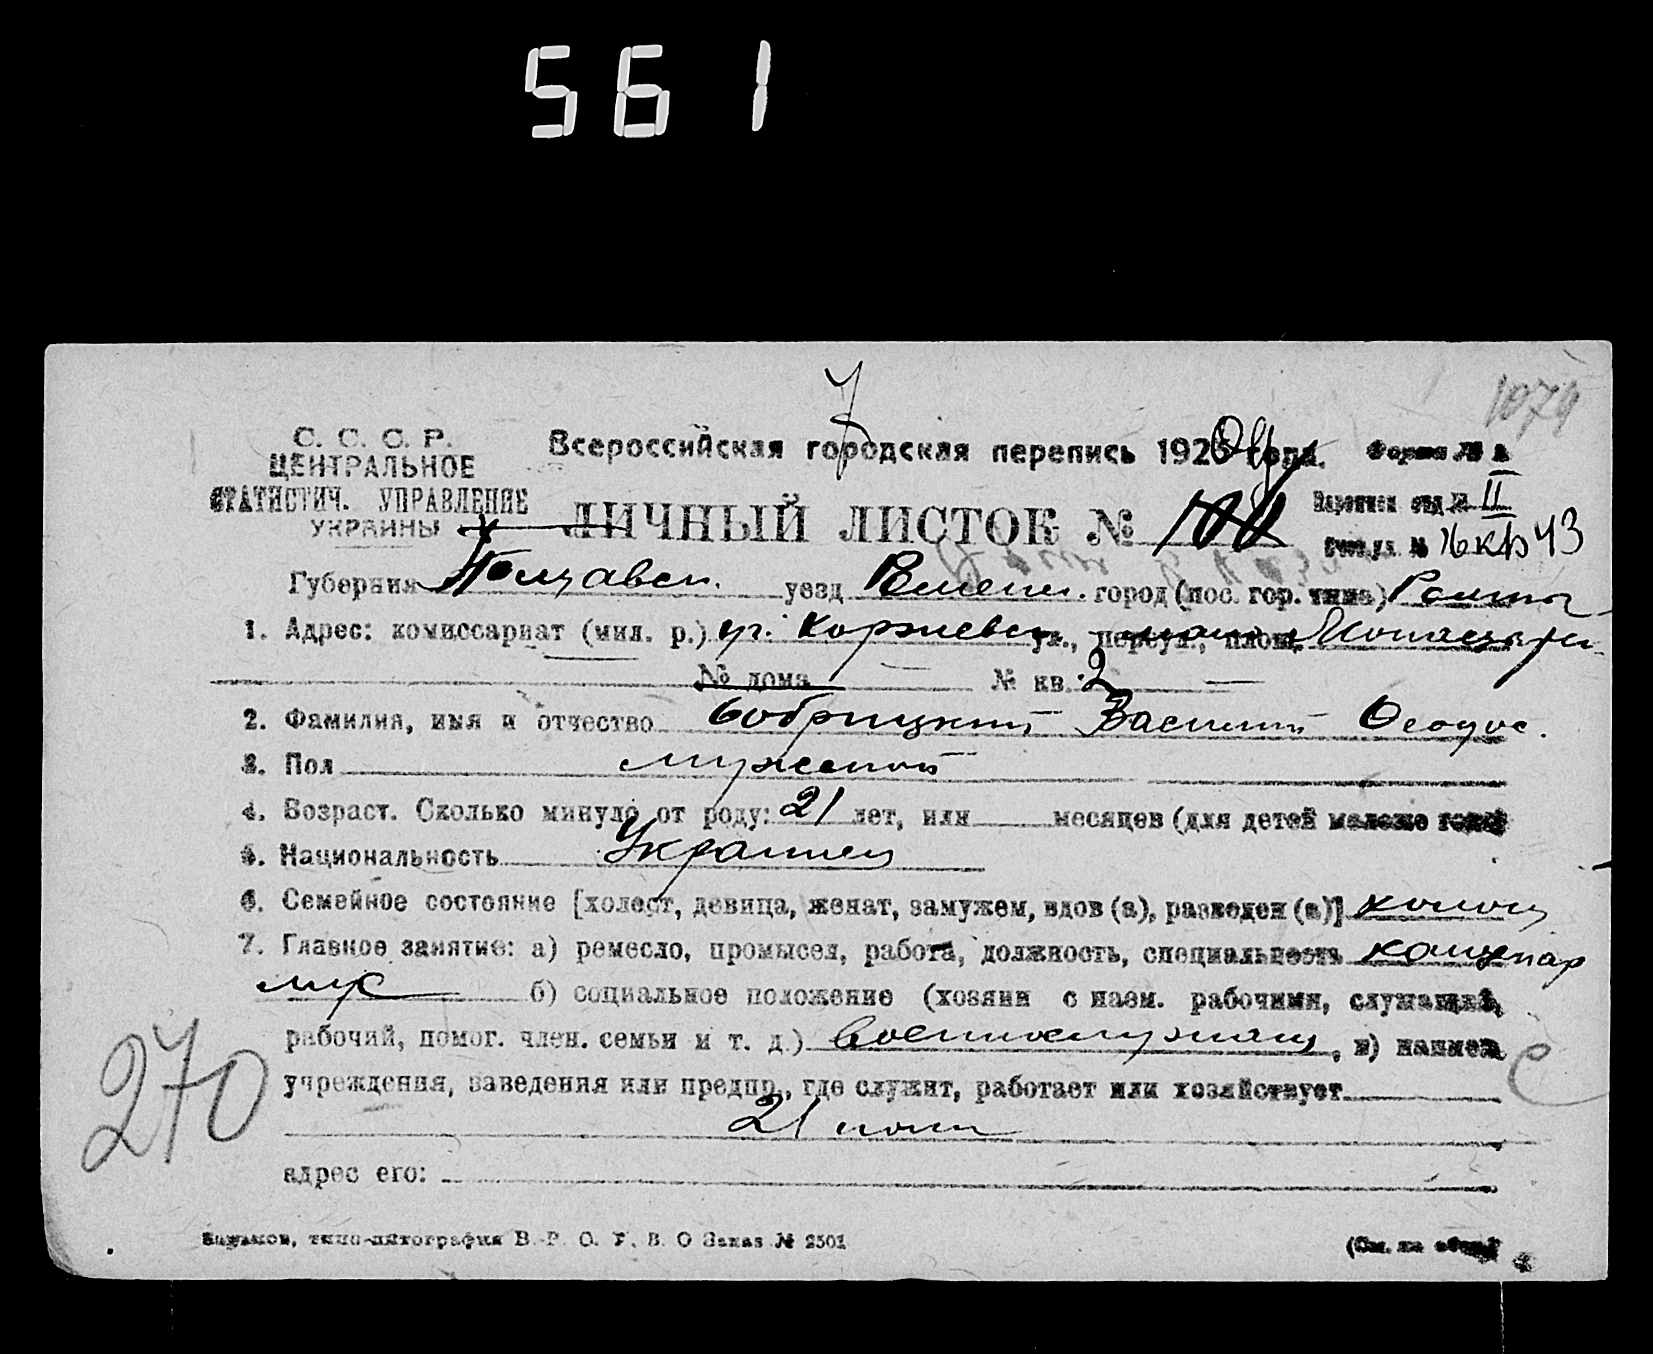 561
1079
С. С. С. Р.
ЦЕНТРАЛЬНОЕ
СТАТИСТИЧ. УПРАВЛЕНИЕ
УКРАИНЫ
Всероссийская городская перепись 192 года.
Форма № 2
ЛИЧНЫЙ ЛИСТОК №
II
№ 43
Губерния Полтавск. уезд город (пос. гор. типа) Ромны
1. Адрес: комиссариат (мил. р.) уг. Коржевск ул., переул., площ.
№ дома № кв. 2
2. Фамилия, имя и отчество Бобрицкий Василий Феодос.
3. Пол мужской
4. Возраст. Сколько минуло от роду: 21 лет, или месяцев (для детей моложе года)
5. Национальность Украинец
6. Семейное состояние [холост, девица, женат, замужем, вдов (а), разведен (а)] холост
7. Главное занятие: а) ремесло, промысел, работа, должность, специальность
б) социальное положение (хозяин с наем. рабочими, служащий,
рабочий, помог. член. семьи и т. д.) военнослужащ, в) наимен.
учреждения, заведения или предпр., где служит, работает или хозяйствует
21
адрес его:
270
Харьков, типо-литография В. Р. О. У. В. О Заказ № 2501
(См. на обор.)